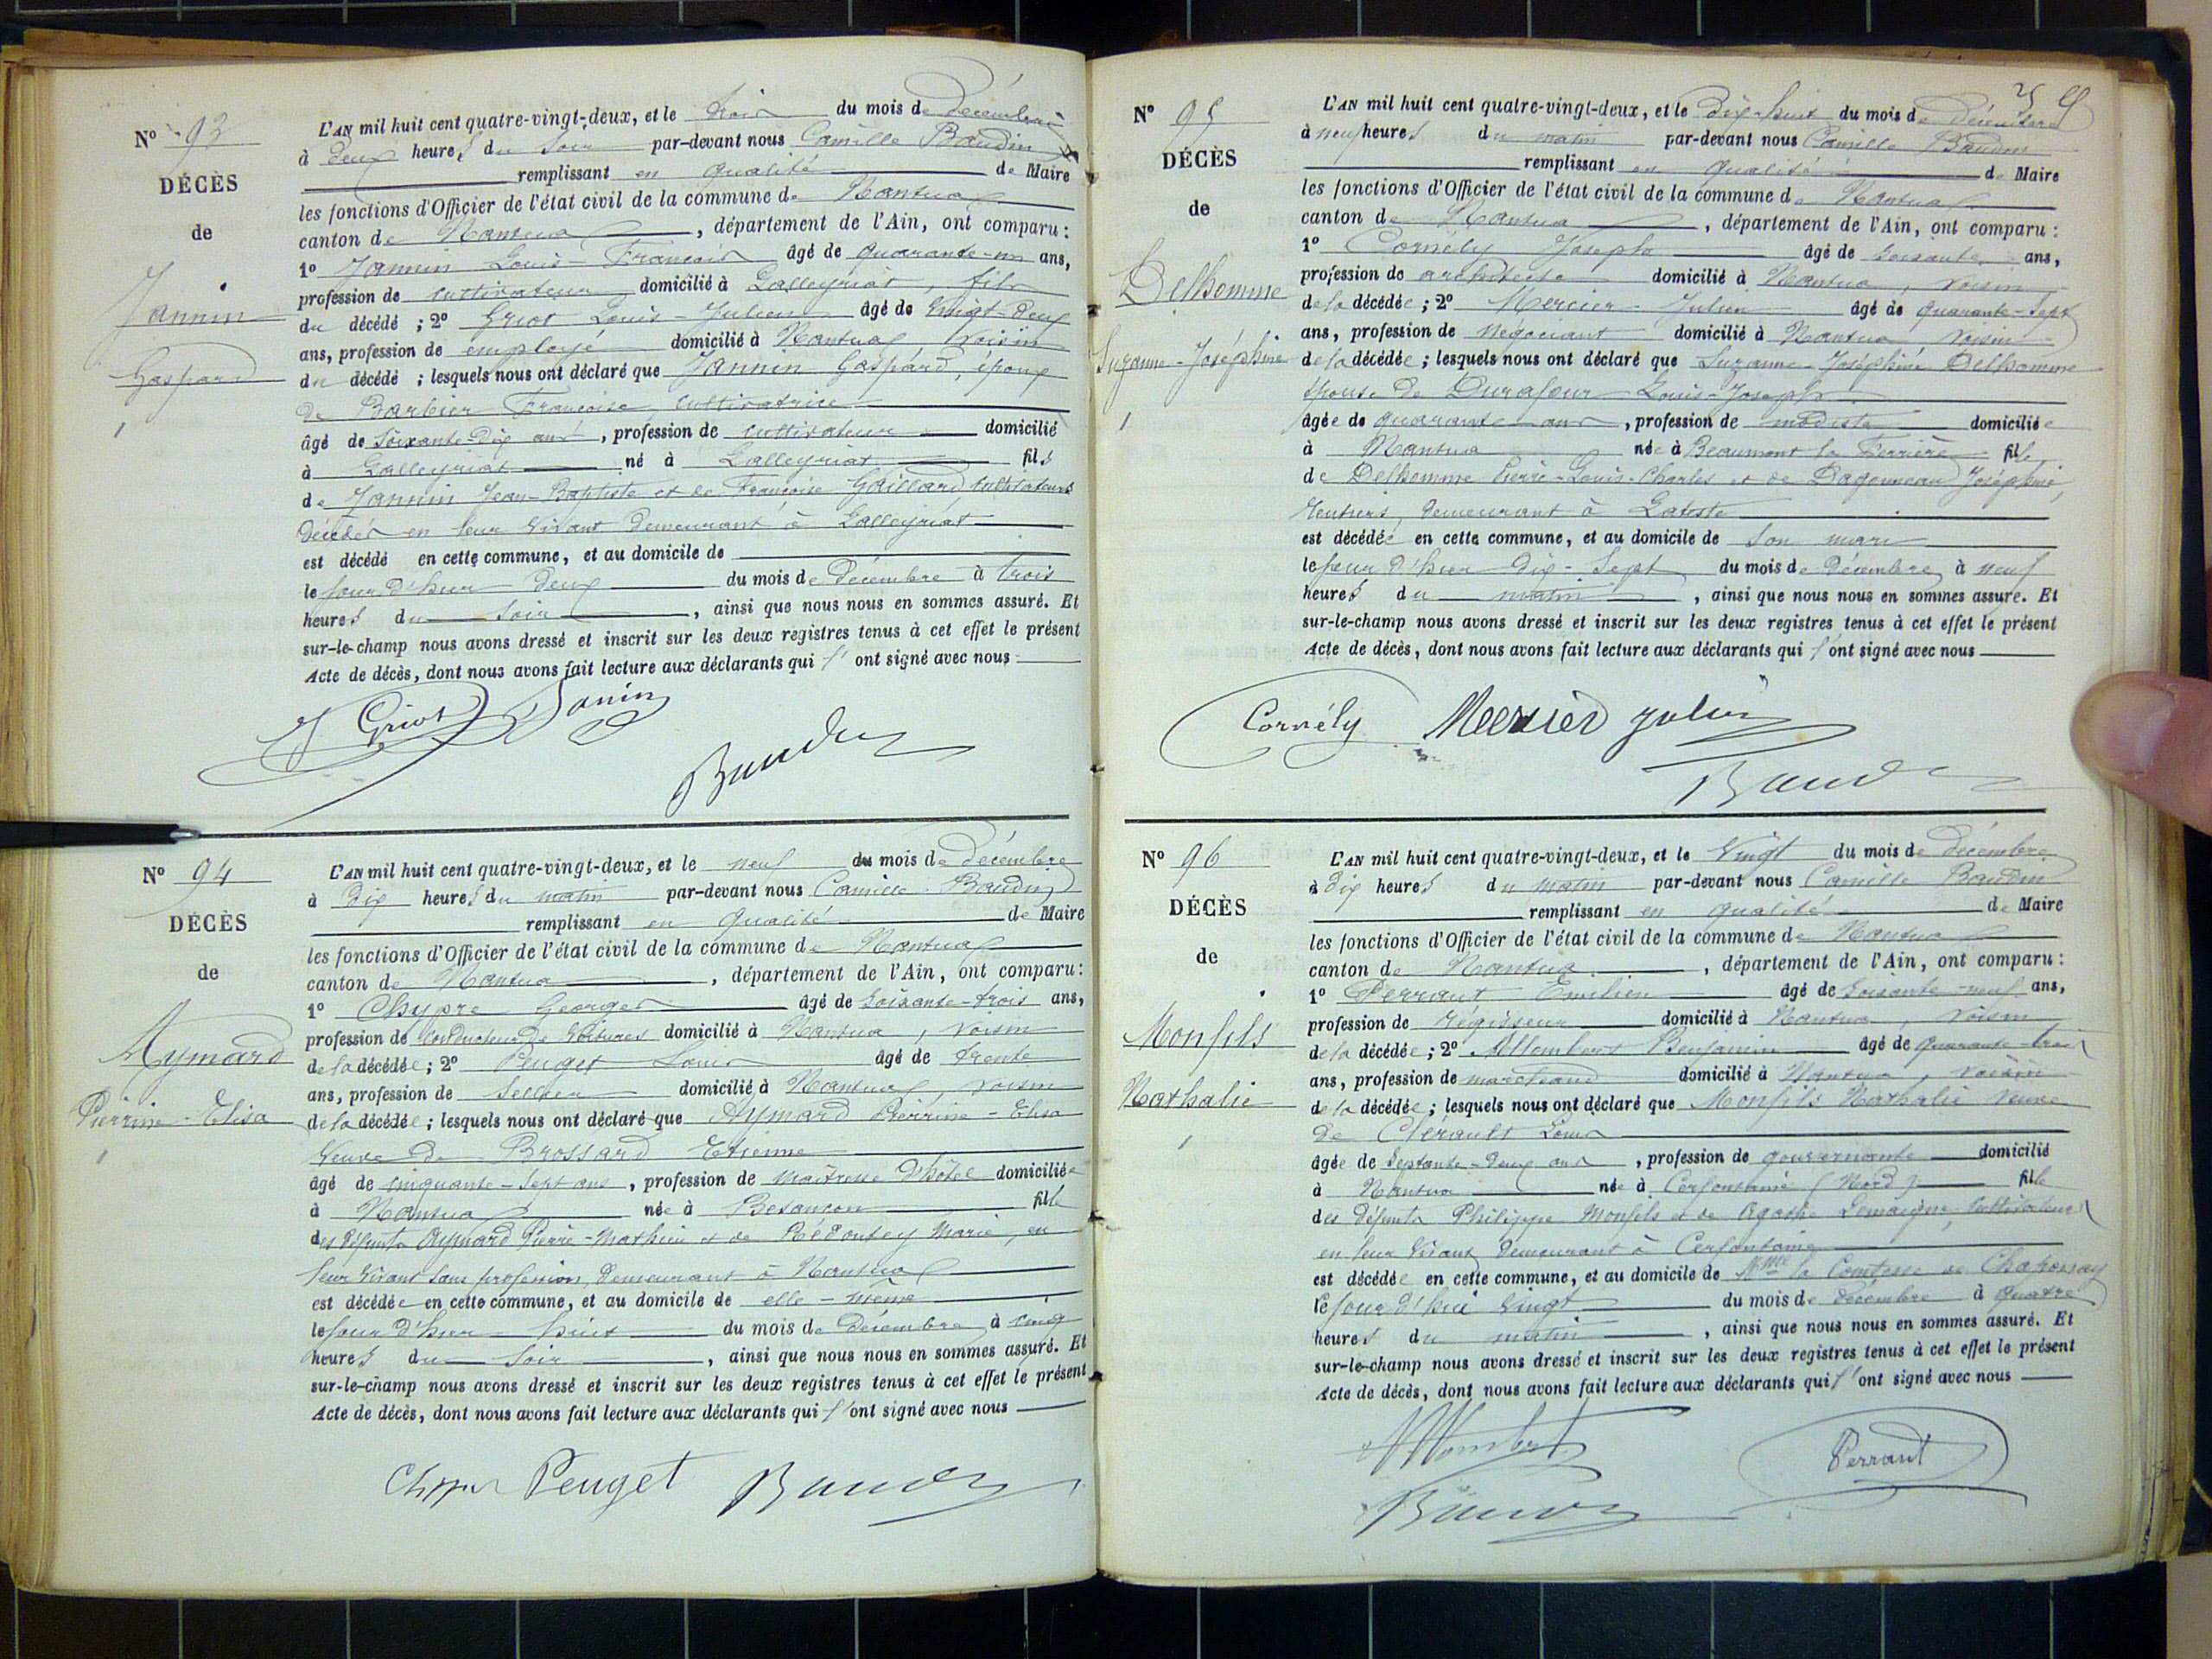 N° 93
DÉCÈS
de
Jannin
Gaspard
L'AN mil huit cent quatre-vingt-deux, et le trois du mois de Décembre
à Deux heures du Soir par-devant nous Camille Baudin
remplissant en qualité de Maire
les fonctions d'Officier de l'état civil de la commune de Nantua
canton de Nantua, département de l'Ain, ont comparu :
1° Jannin Louis-François âgé de quarante-un ans,
profession de cultivateur domicilié à Lalleyriat, fils
du décédé ; 2° Griot Louis-Julien âgé de Vingt-Deux
ans, profession de employé domicilié à Nantua, Voisin
du décédé ; lesquels nous ont déclaré que Jannin Gaspard, époux
de Barbier Françoise, cultivatrice
âgé de Soixante-Dix ans, profession de cultivateur domicilié
à Lalleyriat né à Lalleyriat fils
de Jannin Jean-Baptiste et de Françoise Gaillard cultivateurs
Décédés en leur Vivant Demeurant à Lalleyriat
est décédé en cette commune, et au domicile de
le jour d'hier deux du mois de Décembre à trois
heures du Soir, ainsi que nous nous en sommes assuré. Et
sur-le-champ nous avons dressé et inscrit sur les deux registres tenus à cet effet le présent
Acte de décès, dont nous avons fait lecture aux déclarants qui l'ont signé avec nous
J Griot Janin
Baudin
N° 94
DÉCÈS
de
Aymard
Pierrine-Elisa
L'AN mil huit cent quatre-vingt-deux, et le neuf du mois de Décembre
à Dix heures du matin par-devant nous Camille Baudin
remplissant en qualité de Maire
les fonctions d'Officier de l'état civil de la commune de Nantua
canton de Nantua, département de l'Ain, ont comparu :
1° Chypre Georges âgé de Soixante-trois ans,
profession de Conducteur De Voitures domicilié à Nantua, Voisin
de la décédée ; 2° Peuget Louis âgé de trente
ans, profession de Sellier domicilié à Nantua, Voisin
de la décédée ; lesquels nous ont déclaré que Aymard Pierrine-Elisa
Veuve de Brossard Etienne
âgé de cinquante-Sept ans, profession de Maîtresse D'hôtel domiciliée
à Nantua née à Besançon fille
des défunts Aymard Pierre-Mathieu et de Rédoutey Marie, en
leur Vivant Sans profession, Demeurant à Nantua
est décédée en cette commune, et au domicile de elle-même
le jour d'hier huit du mois de Décembre à cinq
heures du Soir, ainsi que nous nous en sommes assuré. Et
sur-le-champ nous avons dressé et inscrit sur les deux registres tenus à cet effet le présent
Acte de décès, dont nous avons fait lecture aux déclarants qui l'ont signé avec nous
Peuget Baudin
N° 95
DÉCÈS
de
Delhomme
Suzanne-Joséphine
L'AN mil huit cent quatre-vingt-deux, et le Dix-huit du mois de Décembre
à neuf heures du matin par-devant nous Camille Baudin
remplissant en qualité de Maire
les fonctions d'Officier de l'état civil de la commune de Nantua
canton de Nantua, département de l'Ain, ont comparu :
1° Cornély Joseph âgé de Soixante ans,
profession de architecte domicilié à Nantua, voisin
de la décédée ; 2° Mercier Julien âgé de quarante-Sept
ans, profession de Négociant domicilié à Nantua Voisin
de la décédée ; lesquels nous ont déclaré que Suzanne-Joséphine Delhomme
épouse de Durafour Louis-Joseph
âgée de quarante ans, profession de modiste domiciliée
à Nantua née à Beaumont la Ferrière fille
de Delhomme Pierre-Louis-Charles et de Dagonneau Joséphine,
rentiers, Demeurant à Lateste
est décédée en cette commune, et au domicile de Son mari
le jour d'hier dix-Sept du mois de Décembre à neuf
heures du matin, ainsi que nous nous en sommes assuré. Et
sur-le-champ nous avons dressé et inscrit sur les deux registres tenus à cet effet le présent
Acte de décès, dont nous avons fait lecture aux déclarants qui l'ont signé avec nous
Cornély Mercier Julien
Baudin
N° 96
DÉCÈS
de
Monfils
Nathalie
L'AN mil huit cent quatre-vingt-deux, et le Vingt du mois de Décembre
à dix heures du matin par-devant nous Camille Baudin
remplissant en qualité de Maire
les fonctions d'Officier de l'état civil de la commune de Nantua
canton de Nantua, département de l'Ain, ont comparu :
1° Perraut Emilien âgé de Soixante-neuf ans,
profession de Régisseur domicilié à Nantua, Voisin
de la décédée ; 2° Allombert Benjamin âgé de quarante-trois
ans, profession de marchand domicilié à Nantua, Voisin
de la décédée ; lesquels nous ont déclaré que Monfils Nathalie Veuve
de Clérault Louis
âgée de Septante-Deux ans, profession de gouvernante domicilié
à Nantua née à Cerfontaine (Nord) fille
des défunts Philippe Monfils et de Agathe Lemaigne, Cultivateurs
en leur Vivant Demeurant à Cerfontaine
est décédée en cette commune, et au domicile de Mme la Comtesse de
le jour d'hui Vingt du mois de Décembre à quatre
heures du matin, ainsi que nous nous en sommes assuré. Et
sur-le-champ nous avons dressé et inscrit sur les deux registres tenus à cet effet le présent
Acte de décès, dont nous avons fait lecture aux déclarants qui l'ont signé avec nous
Allombert Perraut
Baudin